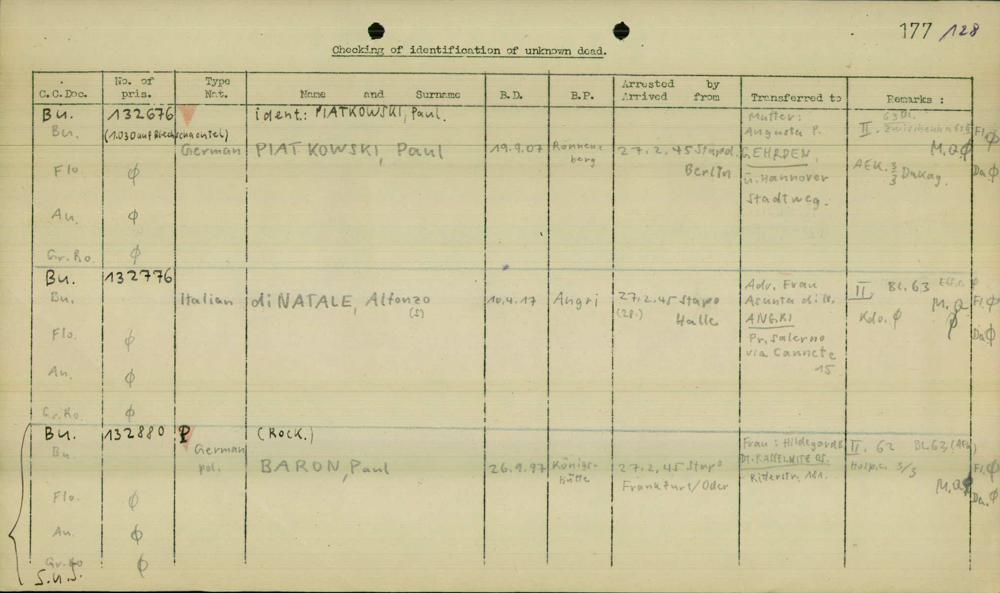 177 /128
Checking of identification of unknown dead.
C.C.Doc. No. of pris. Type Nat. Name and Surname B.D. B.P. Arrested by Arrived from Transferred to Remarks :
Bu. 132676 ident.: PIATKOWSKI, Paul. Mutter:
Bu. Augusta P. II.
German PIATKOWSKI, Paul 19.9.07 Ronnenberg 27.2.45 Stapo GEHRDEN, M.Q ϕ
Flo. ϕ Berlin ü. Hannover AEK. 3/3 Dakag. Da ϕ
Stadtweg.
Au. ϕ
Gr.Ro. ϕ
Bu. 132776
Bu. Italian di NATALE, Alfonzo (s) 10.4.17 Angri 27.2.45 Stapo (28.) Halle Adr. Frau II, Bl. 63
Asunta di N. M.Q Fl. ϕ
ANGRI Kdo. ϕ ϕ
Flo. ϕ Pr. Salerno Da ϕ
via Cannete
Au. ϕ 15
Gr.Ro. ϕ
Bu. 132880 P (Rock.) Frau: Hildegard B II. 62 Bl. 63,
Bu. German
pol. BARON, Paul 26.9.97 Königshütte 27.2.45 Stapo Hosp. 3/3 Fl. ϕ
Frankfurt/Oder Ritterstr. 181. M.Q ϕ
Flo. ϕ Da. ϕ
Au. ϕ
Gr.Ro ϕ
S.u.S.